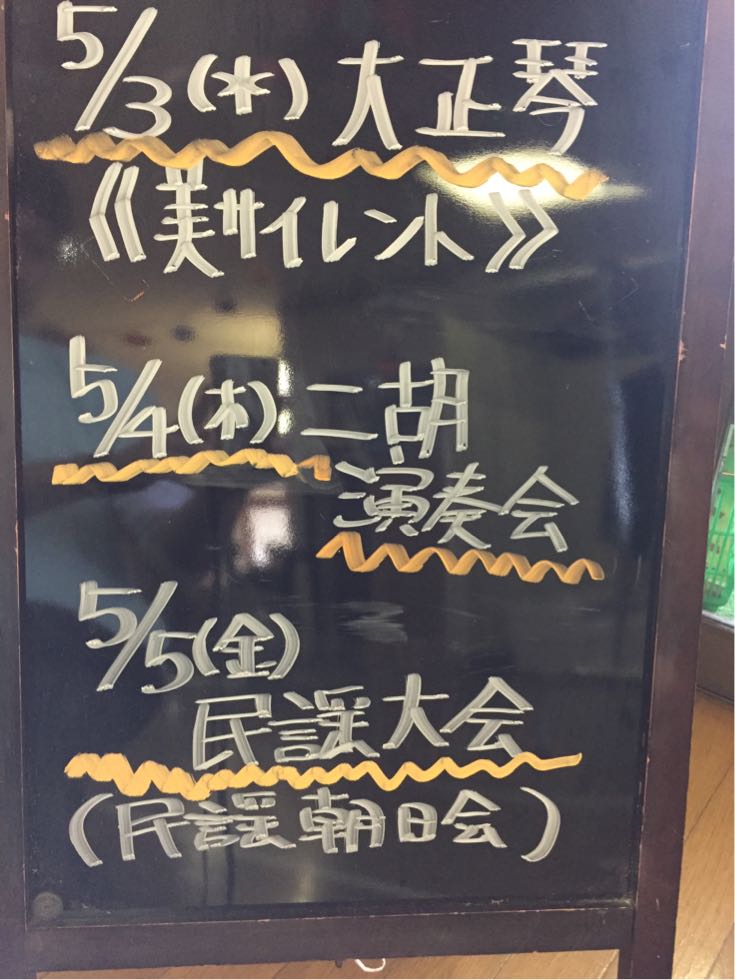 5/3(水)大正琴
《美サイレント》
5/4(木)二胡
演奏会
5/5(金)
民謡大会
(民謡朝日会)